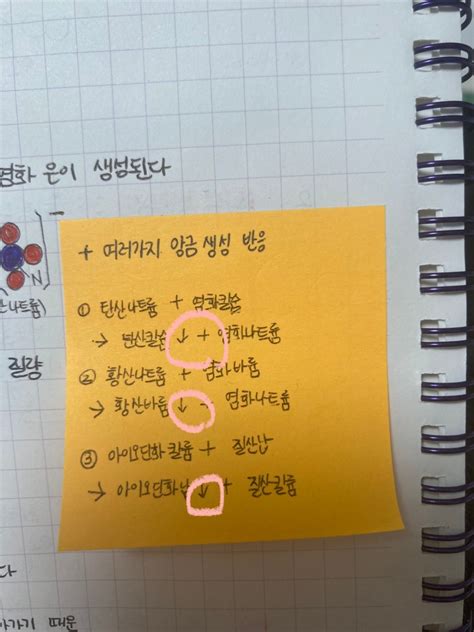 염화 은이 생성된다
N
산나트륨)
질량
+ 여러가지 앙금 생성 반응
① 탄산나트륨 + 염화칼슘
→ 탄산칼슘 ↓ + 염화나트륨
② 황산나트륨 + 염화바륨
→ 황산바륨 ↓ + 염화나트륨
③ 아이오딘화 칼륨 + 질산납
→ 아이오딘화납 ↓ + 질산칼륨
다
아가기 때문